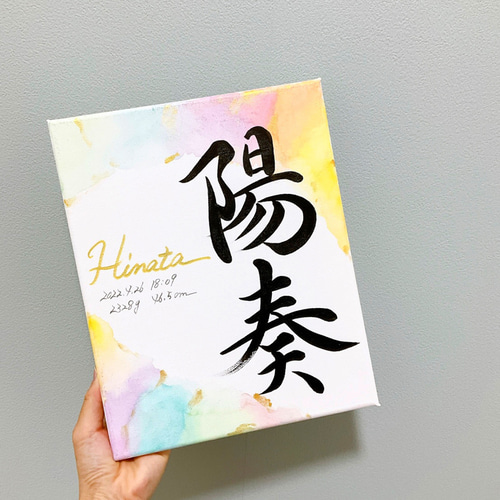 陽奏
Hinata
2022.4.26 18:09
2328g 46.5cm